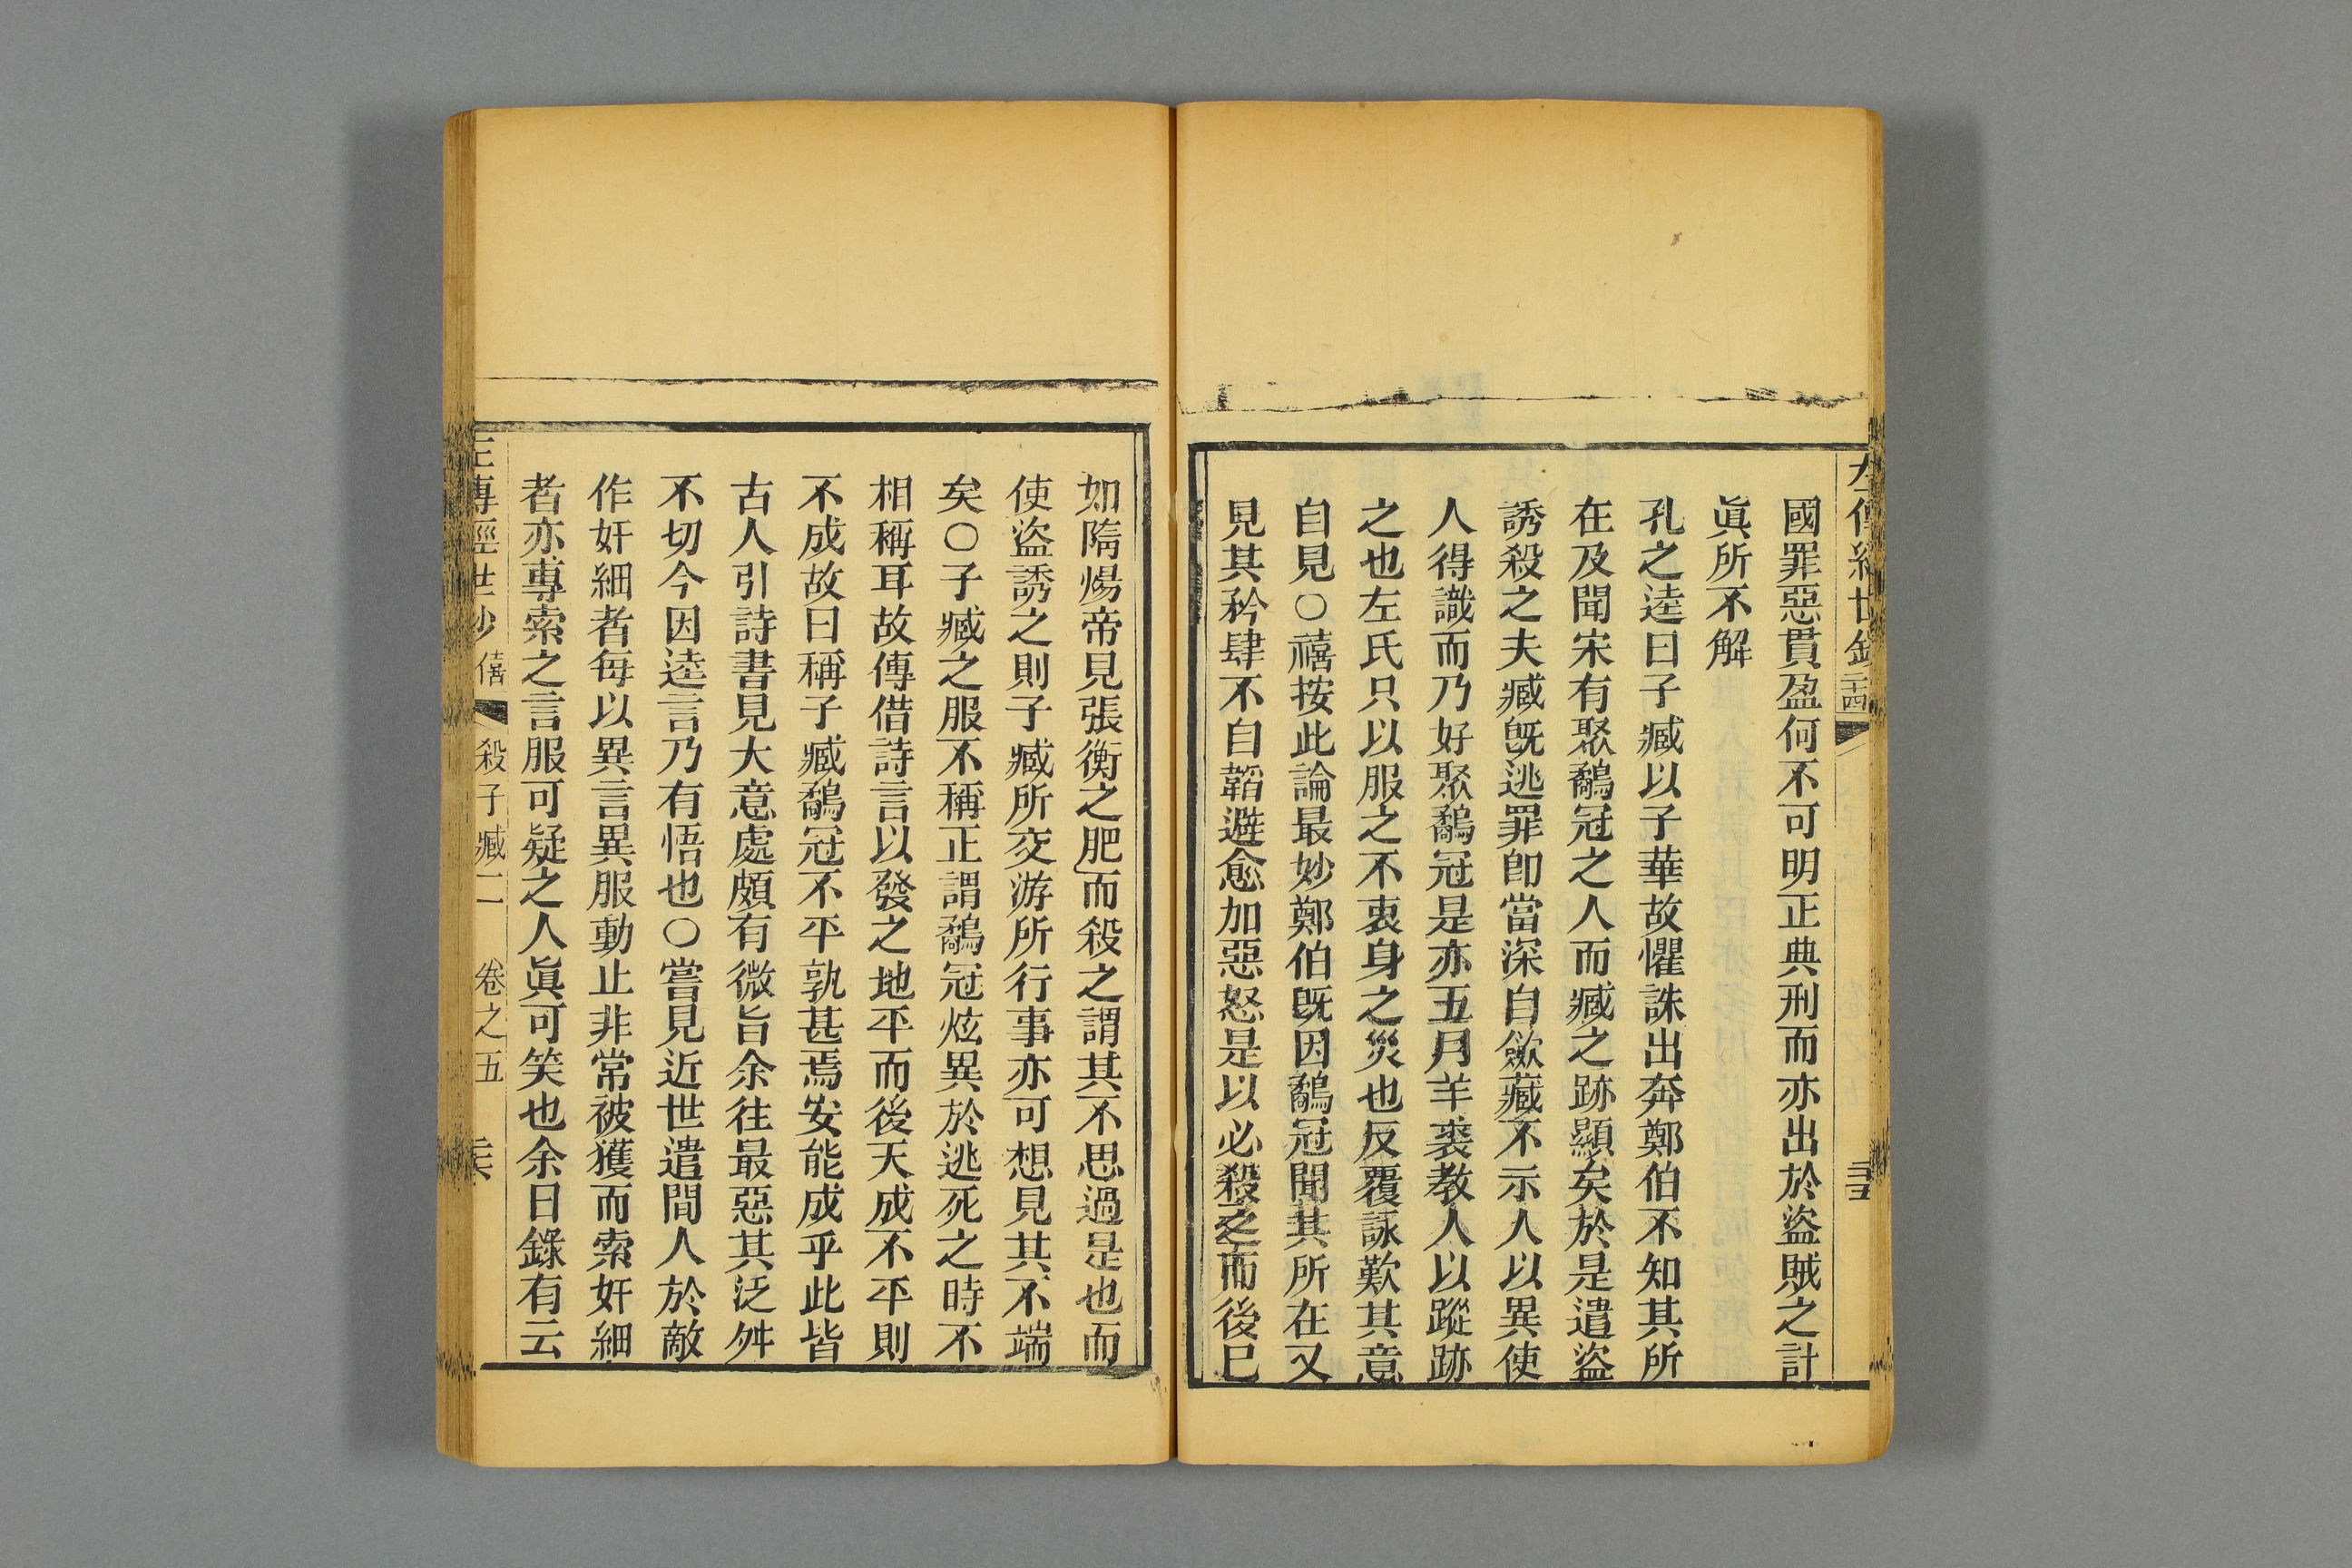 國罪惡貫盈何不可明正典刑而亦出於盜賊之計
眞所不解
孔之逵曰子臧以子華故懼誅出奔鄭伯不知其所
在及聞宋有聚鷸冠之人而臧之跡顯矣於是遣盜
誘殺之夫臧旣逃罪卽當深自歛藏不示人以異使
人得識而乃好聚鷸冠是亦五月羊裘教人以蹤跡
之也左氏只以服之不衷身之災也反覆詠歎其意
自見○禧按此論最妙鄭伯旣因鷸冠聞其所在又
見其矜肆不自韜避愈加惡怒是以必殺之而後已
如隋煬帝見張衡之肥而殺之謂其不思過是也而
使盜誘之則子臧所交游所行事亦可想見其不端
矣○子臧之服不稱正謂鷸冠炫異於逃死之時不
相稱耳故傳借詩言以發之地平而後天成不平則
不成故曰稱子臧鷸冠不平孰甚焉安能成乎此皆
古人引詩書見大意處頗有微旨余往最惡其泛舛
不切今因逵言乃有悟也○嘗見近世遣間人於敵
作奸細者每以異言異服動止非常被獲而索奸細
者亦專索之言服可疑之人眞可笑也余日錄有云
傳經世鈔 僖 殺子臧二 卷之五